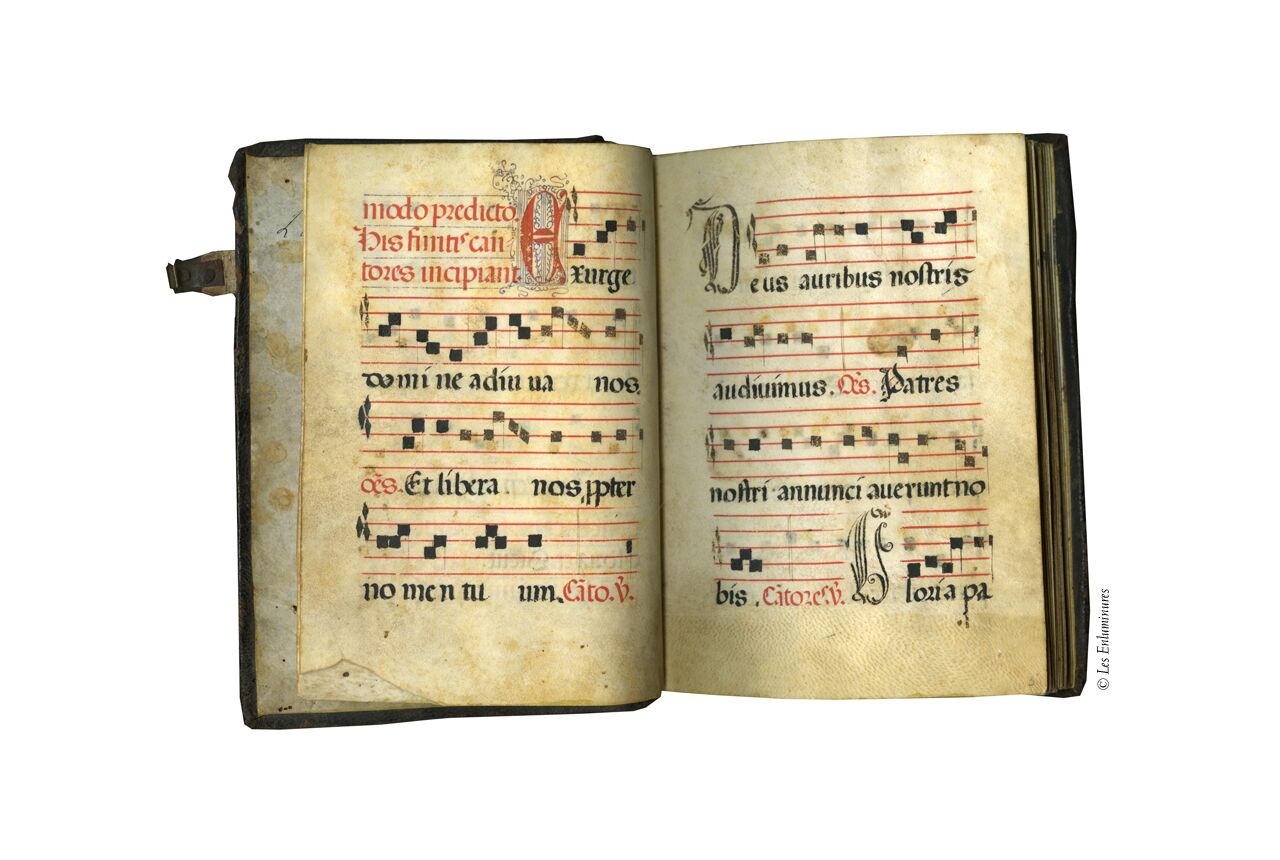 modo predicto
His finitis can
tores incipiant Exurge
domine adiuua nos.
O͞es. Et libera nos ꝓpter
nomen tuum. Ca͞to. V͞.
Deus auribus nostris
audiuimus. O͞es. Patres
nostri annunciauerunt no
bis. Ca͞tores V͞. Gloria pa
© Les Enluminures